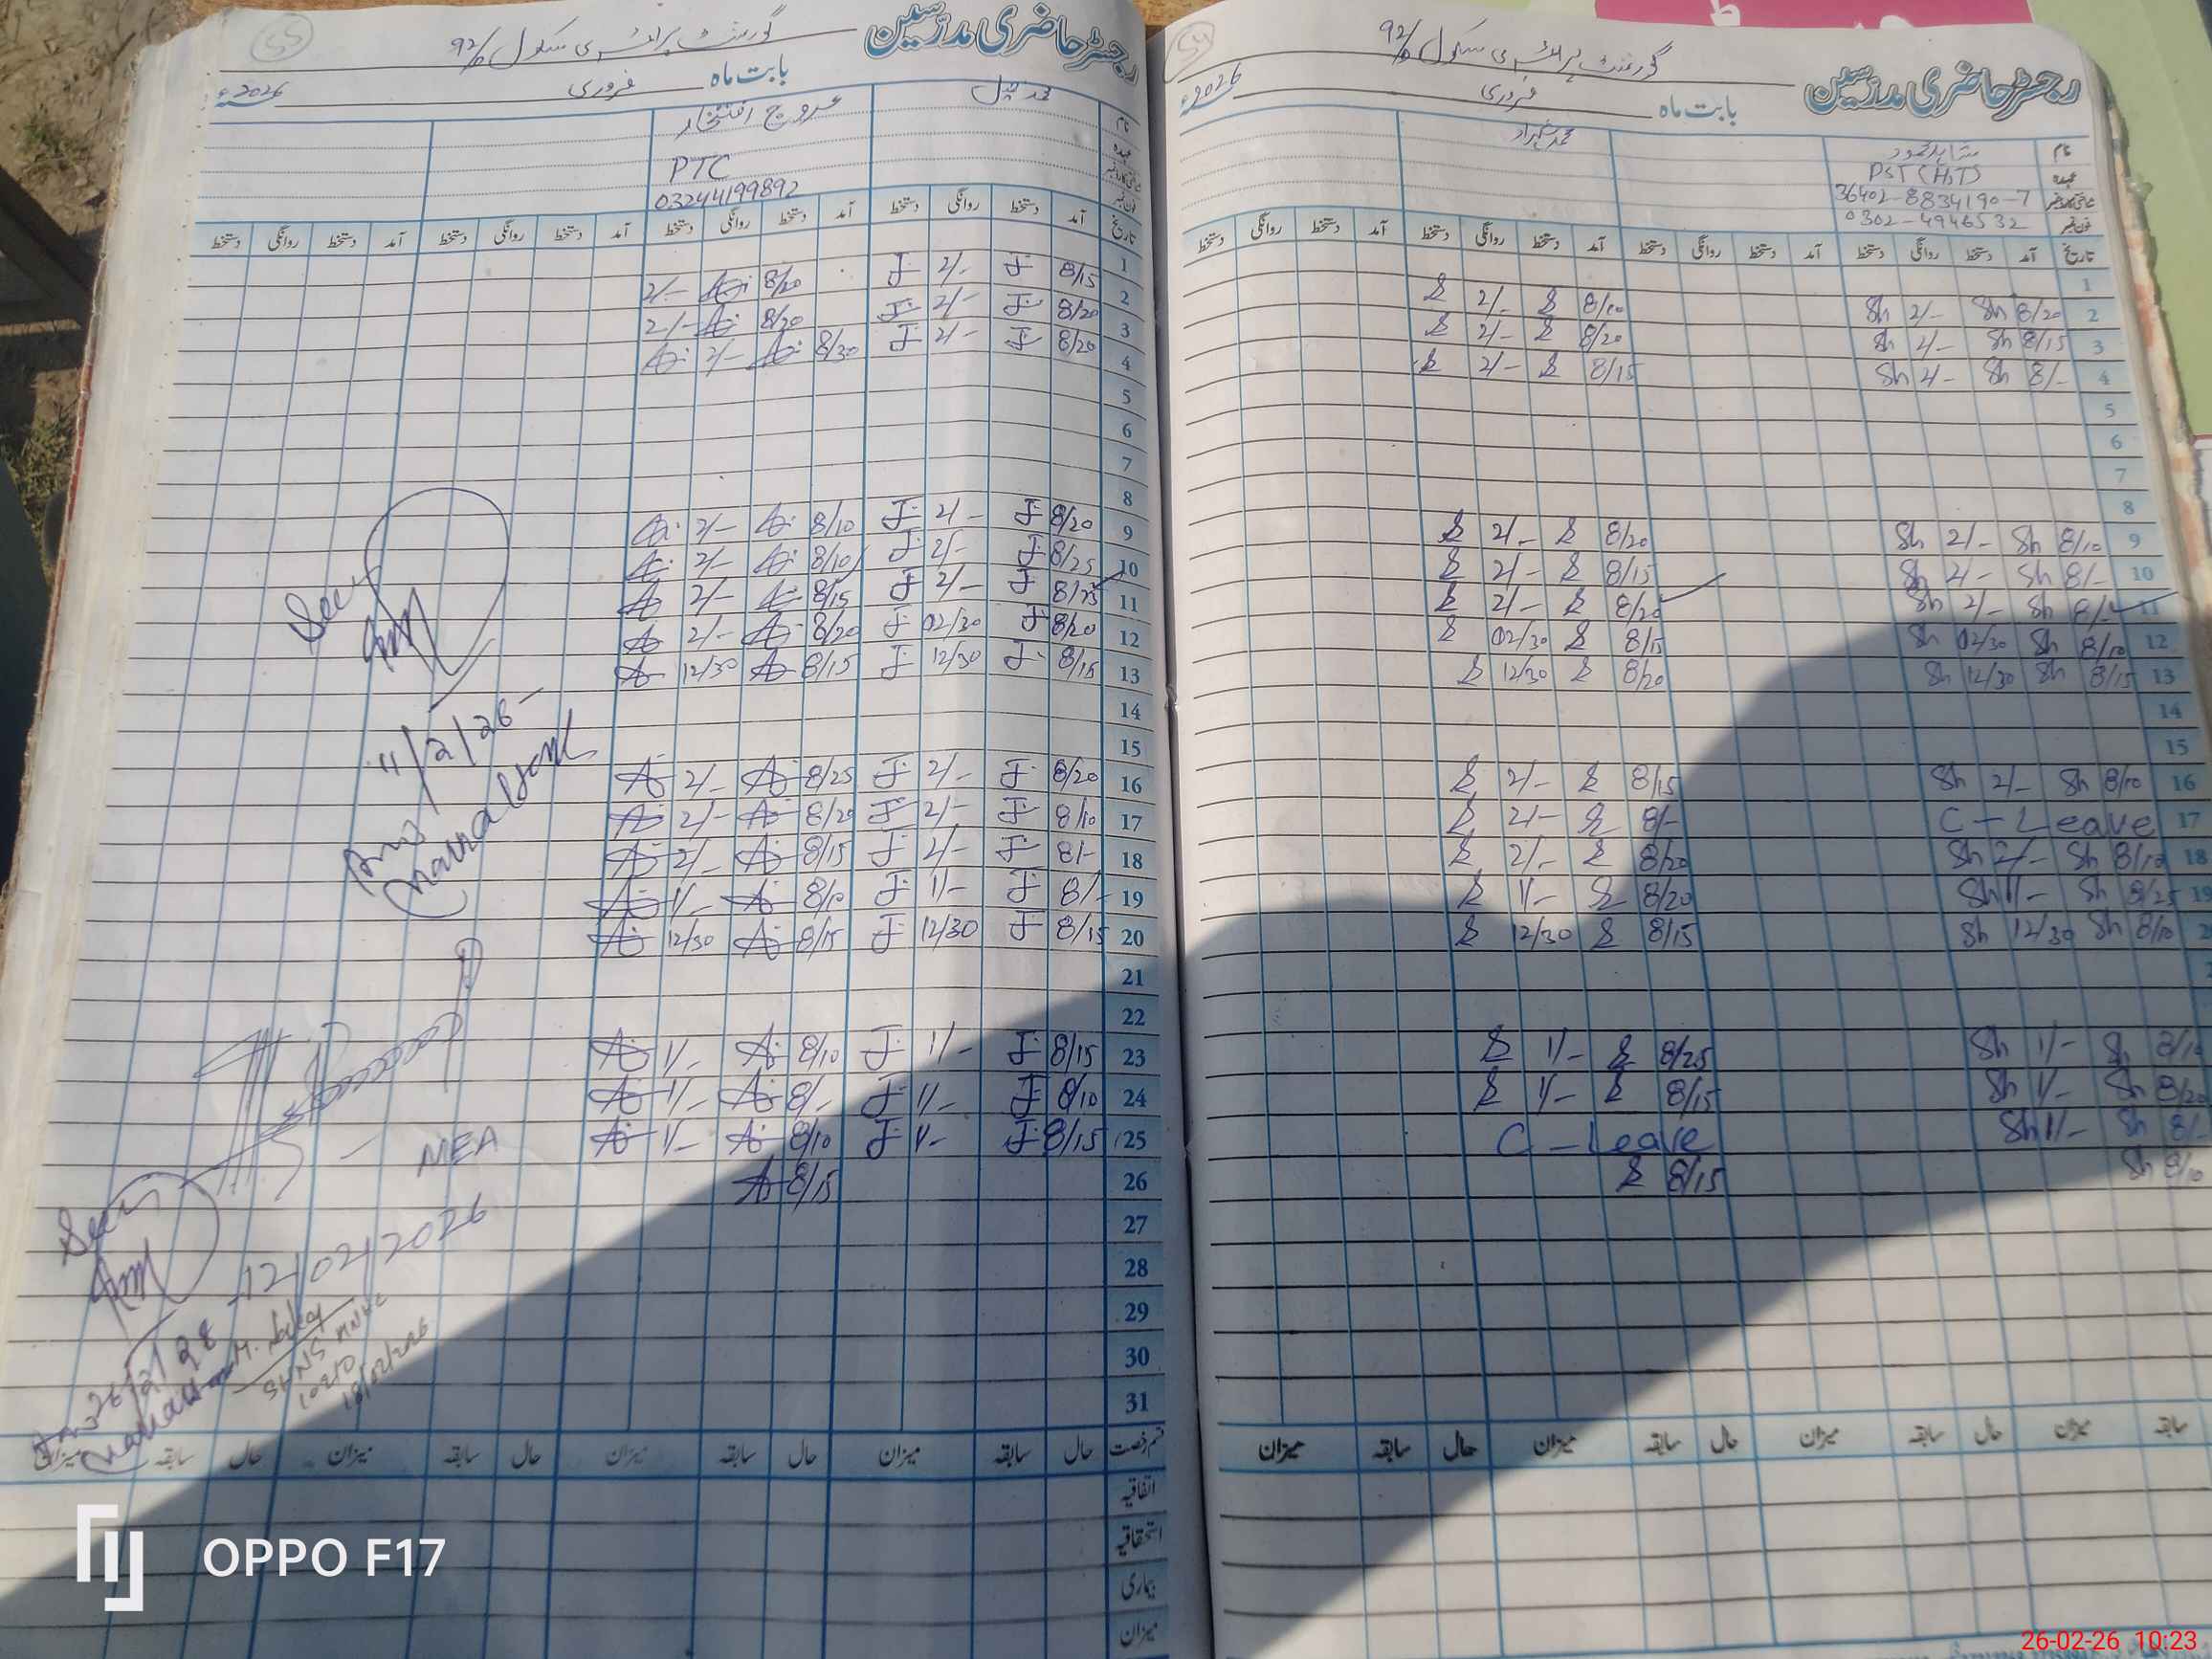 رجسٹر حاضری مدرسین
گورنمنٹ پرائمری سکول 92/D
بابت ماہ فروری 2026ء
نام شاہد محمود محمد شہزاد
عہدہ PST (HT)
شناختی کارڈ نمبر 36402-8834190-7
فون نمبر 0302-4946532
تاریخ آمد دستخط روانگی دستخط آمد دستخط روانگی دستخط آمد دستخط روانگی دستخط آمد دستخط روانگی دستخط
1
2 8/20 Sh 2/- Sh 8/10 S 2/- S
3 8/15 Sh 2/- Sh 8/20 S 2/- S
4 8/- Sh 2/- Sh 8/15 S 2/- S
5
6
7
8
9 8/10 Sh 2/- Sh 8/20 S 2/- S
10 8/- Sh 2/- Sh 8/15 S 2/- S
11 8/- Sh 2/- Sh 8/20 S 2/- S
12 8/10 Sh 12/30 Sh 8/15 S 12/30 S
13 8/15 Sh 12/30 Sh 8/20 S 12/30 S
14
15
16 8/10 Sh 2/- Sh 8/15 S 2/- S
17 C - Leave 8/- S 2/- S
18 8/10 Sh 2/- Sh 8/20 S 2/- S
19 8/25 Sh 1/- Sh 8/20 S 1/- S
8/10 Sh 12/30 Sh 8/15 S 12/30 S
Sh 1/- Sh 8/25 S 1/- S
8/20 Sh 1/- Sh 8/15 S 1/- S
8/- Sh 1/- Sh C - Leave
8/10 Sh 8/15 S
سابقہ میزان حال سابقہ میزان حال سابقہ میزان حال سابقہ میزان
رجسٹر حاضری مدرسین
گورنمنٹ پرائمری سکول 92/D
55
بابت ماہ فروری 2026ء
نام عروج افتخار
عہدہ PTC
فون نمبر 03244199892
تاریخ آمد دستخط روانگی دستخط آمد دستخط روانگی دستخط آمد دستخط روانگی دستخط آمد دستخط روانگی دستخط
1
2 8/15 J 2/- J 8/20 A 2/-
3 8/20 J 2/- J 8/20 A 2/-
4 8/20 J 2/- J 8/30 A 2/- A
5
6
7
8
9 8/20 J 2/- J 8/10 A 2/- A
10 8/25 J 2/- J 8/10 A 2/- A
11 8/25 J 2/- J 8/15 A 2/- A
12 8/20 J 12/30 J 8/20 A 2/- A
13 8/15 J 12/30 J 8/15 A 12/30 A
14
15
16 8/20 J 2/- J 8/25 A 2/- A
17 8/10 J 2/- J 8/20 A 2/- A
18 8/- J 2/- J 8/15 A 2/- A
19 8/- J 1/- J 8/10 A 1/- A
20 8/15 J 12/30 J 8/15 A 12/30 A
21
22
23 8/15 J 1/- J 8/10 A 1/- A
24 8/10 J 1/- J 8/- A 1/- A
25 8/15 J 1/- J 8/10 A 1/- A
26 8/15 A
27
28
29
30
31
Seen
11/2/26
MEA
12/02/2026
Seen
SHNS
18/02/2026
قسم رخصت حال سابقہ میزان حال سابقہ میزان حال سابقہ میزان حال سابقہ میزان
اتفاقیہ
استحقاقیہ
بیماری
میزان
OPPO F17
26-02-26 10:23